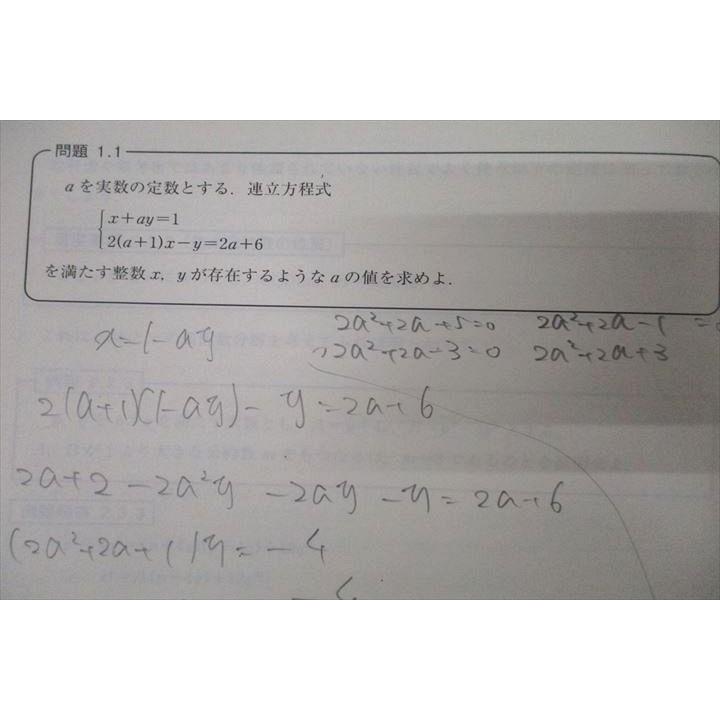 問題 1.1
aを実数の定数とする.連立方程式
x+ay=1
2(a+1)x-y=2a+6
を満たす整数x, yが存在するようなaの値を求めよ.
x=1-ay
2a²+2a+5=0 2a²+2a-1=0
2a²+2a-3=0 2a²+2a+3
2(a+1)(1-ay)-y=2a+6
2a+2-2a²y-2ay-y=2a+6
(2a²+2a+1)y=-4
-4